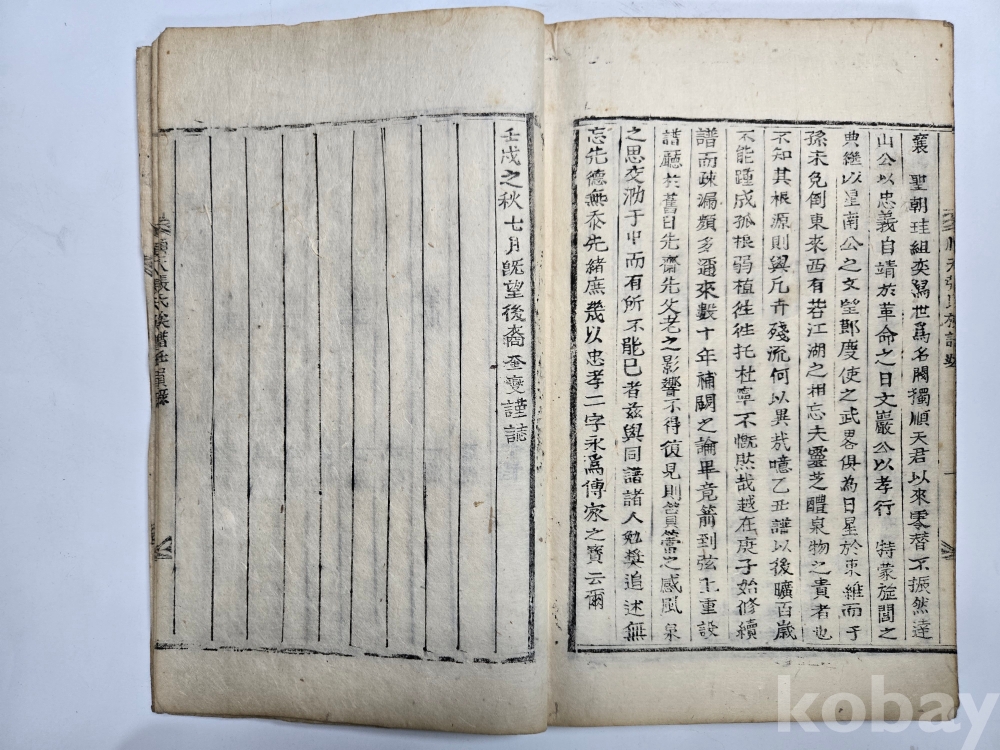 襄 聖朝珪組奕舃世爲名閥獨順天君以來零替不振然達
山公以忠義自靖於革命之日文巖公以孝行 特蒙旋閭之
典繼以星南公之文望郞度使之武畧俱為日星於東維而子
孫未免倒東來西有若江湖之相忘夫靈芝醴泉物之貴者也
不知其根源則與凡卉殘流何以異哉噫乙丑譜以後曠百歲
不能踵成孤根弱植徃徃托杜寧不慨然哉越在庚子始修續
譜而疎漏頗多邇來數十年補闕之論畢竟箭到弦上重設
譜廳於舊臼先齋先父老之影響不得復見則篔簹之感風泉
之思交沏于中而有所不能已者玆與同譜諸人勉奬追述無
忘先德無忝先緖庶幾以忠孝二字永爲傳家之寶云爾
壬戌之秋七月旣望後裔 變謹誌
張氏族譜
kobay